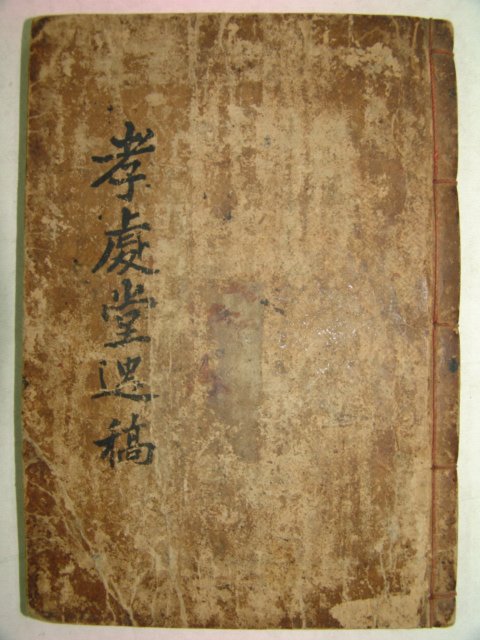 孝處堂逸稿